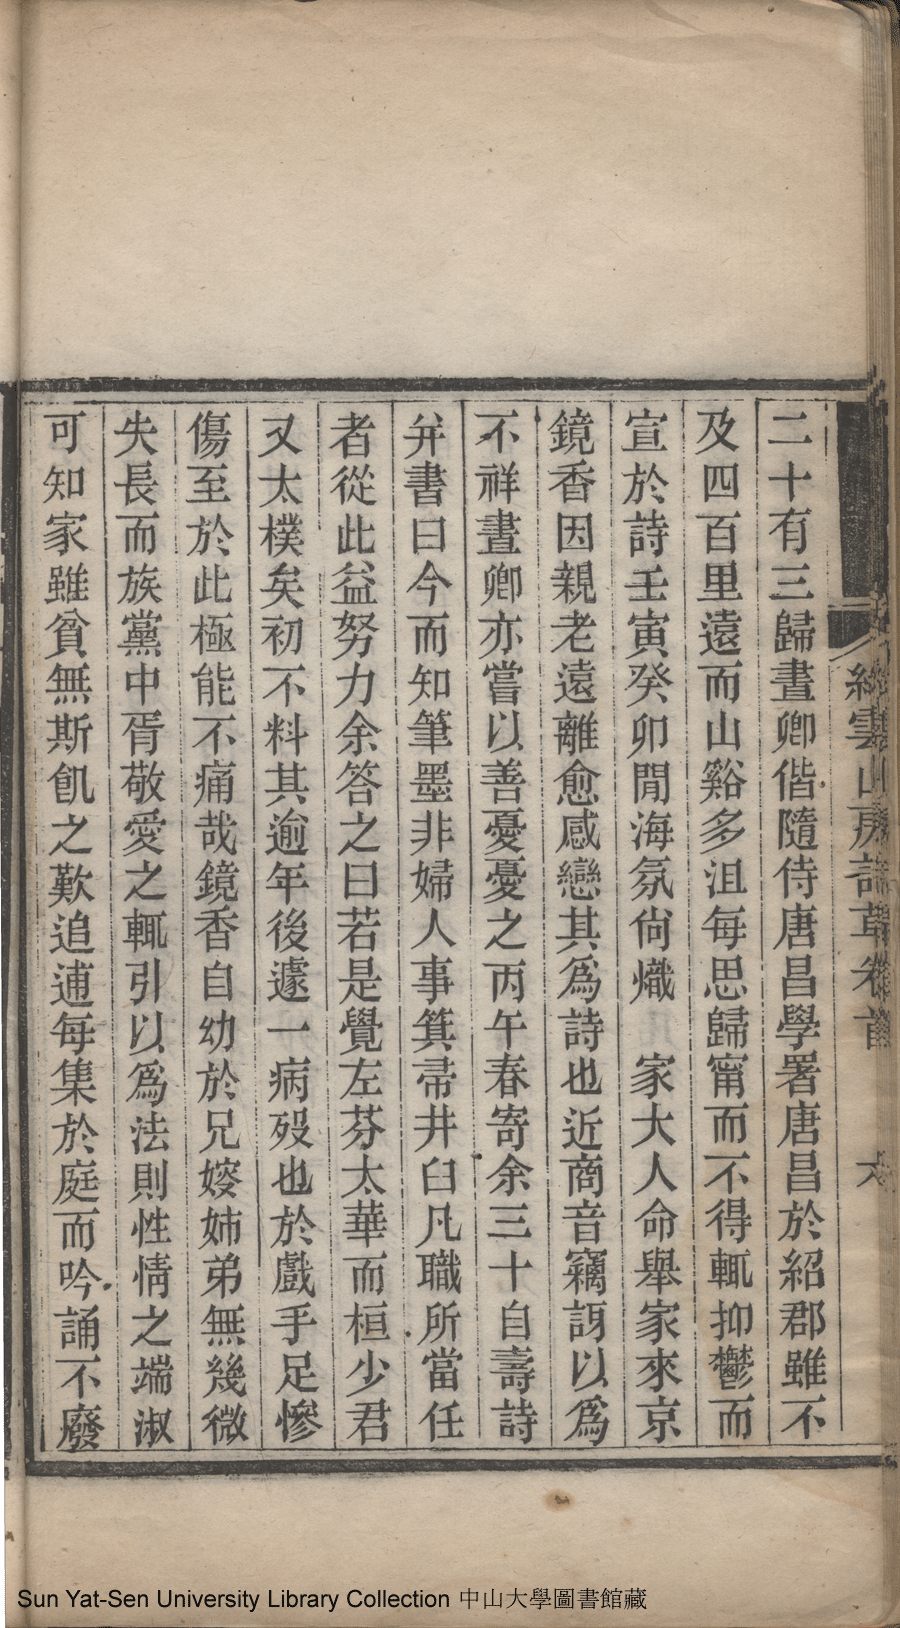 二十有三歸晝卿偕隨侍唐昌學署唐昌於紹郡雖不
及四百里遠而山谿多沮每思歸甯而不得輒抑鬱而
宣於詩壬寅癸卯閒海氛尙熾　家大人命舉家來京
鏡香因親老遠離愈感戀其爲詩也近商音竊訝以爲
不祥晝卿亦嘗以善憂憂之丙午春寄余三十自壽詩
幷書曰今而知筆墨非婦人事箕帚井臼凡職所當任
者從此益努力余答之曰若是覺左芬太華而桓少君
又太樸矣初不料其逾年後遽一病歿也於戲手足慘
傷至於此極能不痛哉鏡香自幼於兄嫂姊弟無幾微
失長而族黨中胥敬愛之輒引以爲法則性情之端淑
可知家雖貧無斯飢之歎追逋每集於庭而吟誦不廢
山房詩草卷首
六
Sun Yat-Sen University Library Collection 中山大學圖書館藏